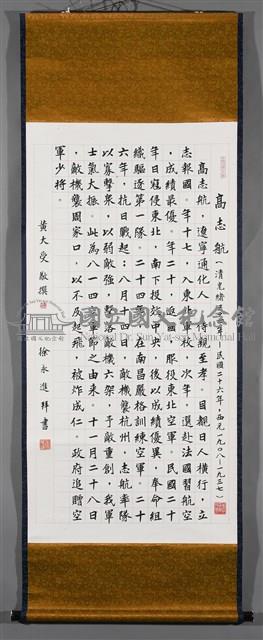 高志航（清光緒戊申年—民國二十六年，西元一九〇八—一九三七）
高志航，遼寧通化人，侍親至孝。目覩日人橫行，立
志報國。年十七，入東北軍校。次年，選赴法國習航空
，成績最優。年二十，返國，服役東北空軍。民國二十
年日寇侵東北，南下投効中央，後以成績優異，奉命組
織驅逐第一隊。二十四年在南昌嚴格訓練空軍。二十
六年，抗日戰起；八月十四日敵機襲杭州，志航率隊
以寡擊眾，以弱敵強，擊落敵機六架，予敵重創，我軍
士氣大振。此為八一四空軍節之由來。十一月二十八日
，敵機襲周家口，以不及起飛，被炸成仁。政府追贈空
軍少將。
黃大受敬撰 徐永進拜書
國立國父紀念館
National Dr. Sun Yat-sen Memorial Hall